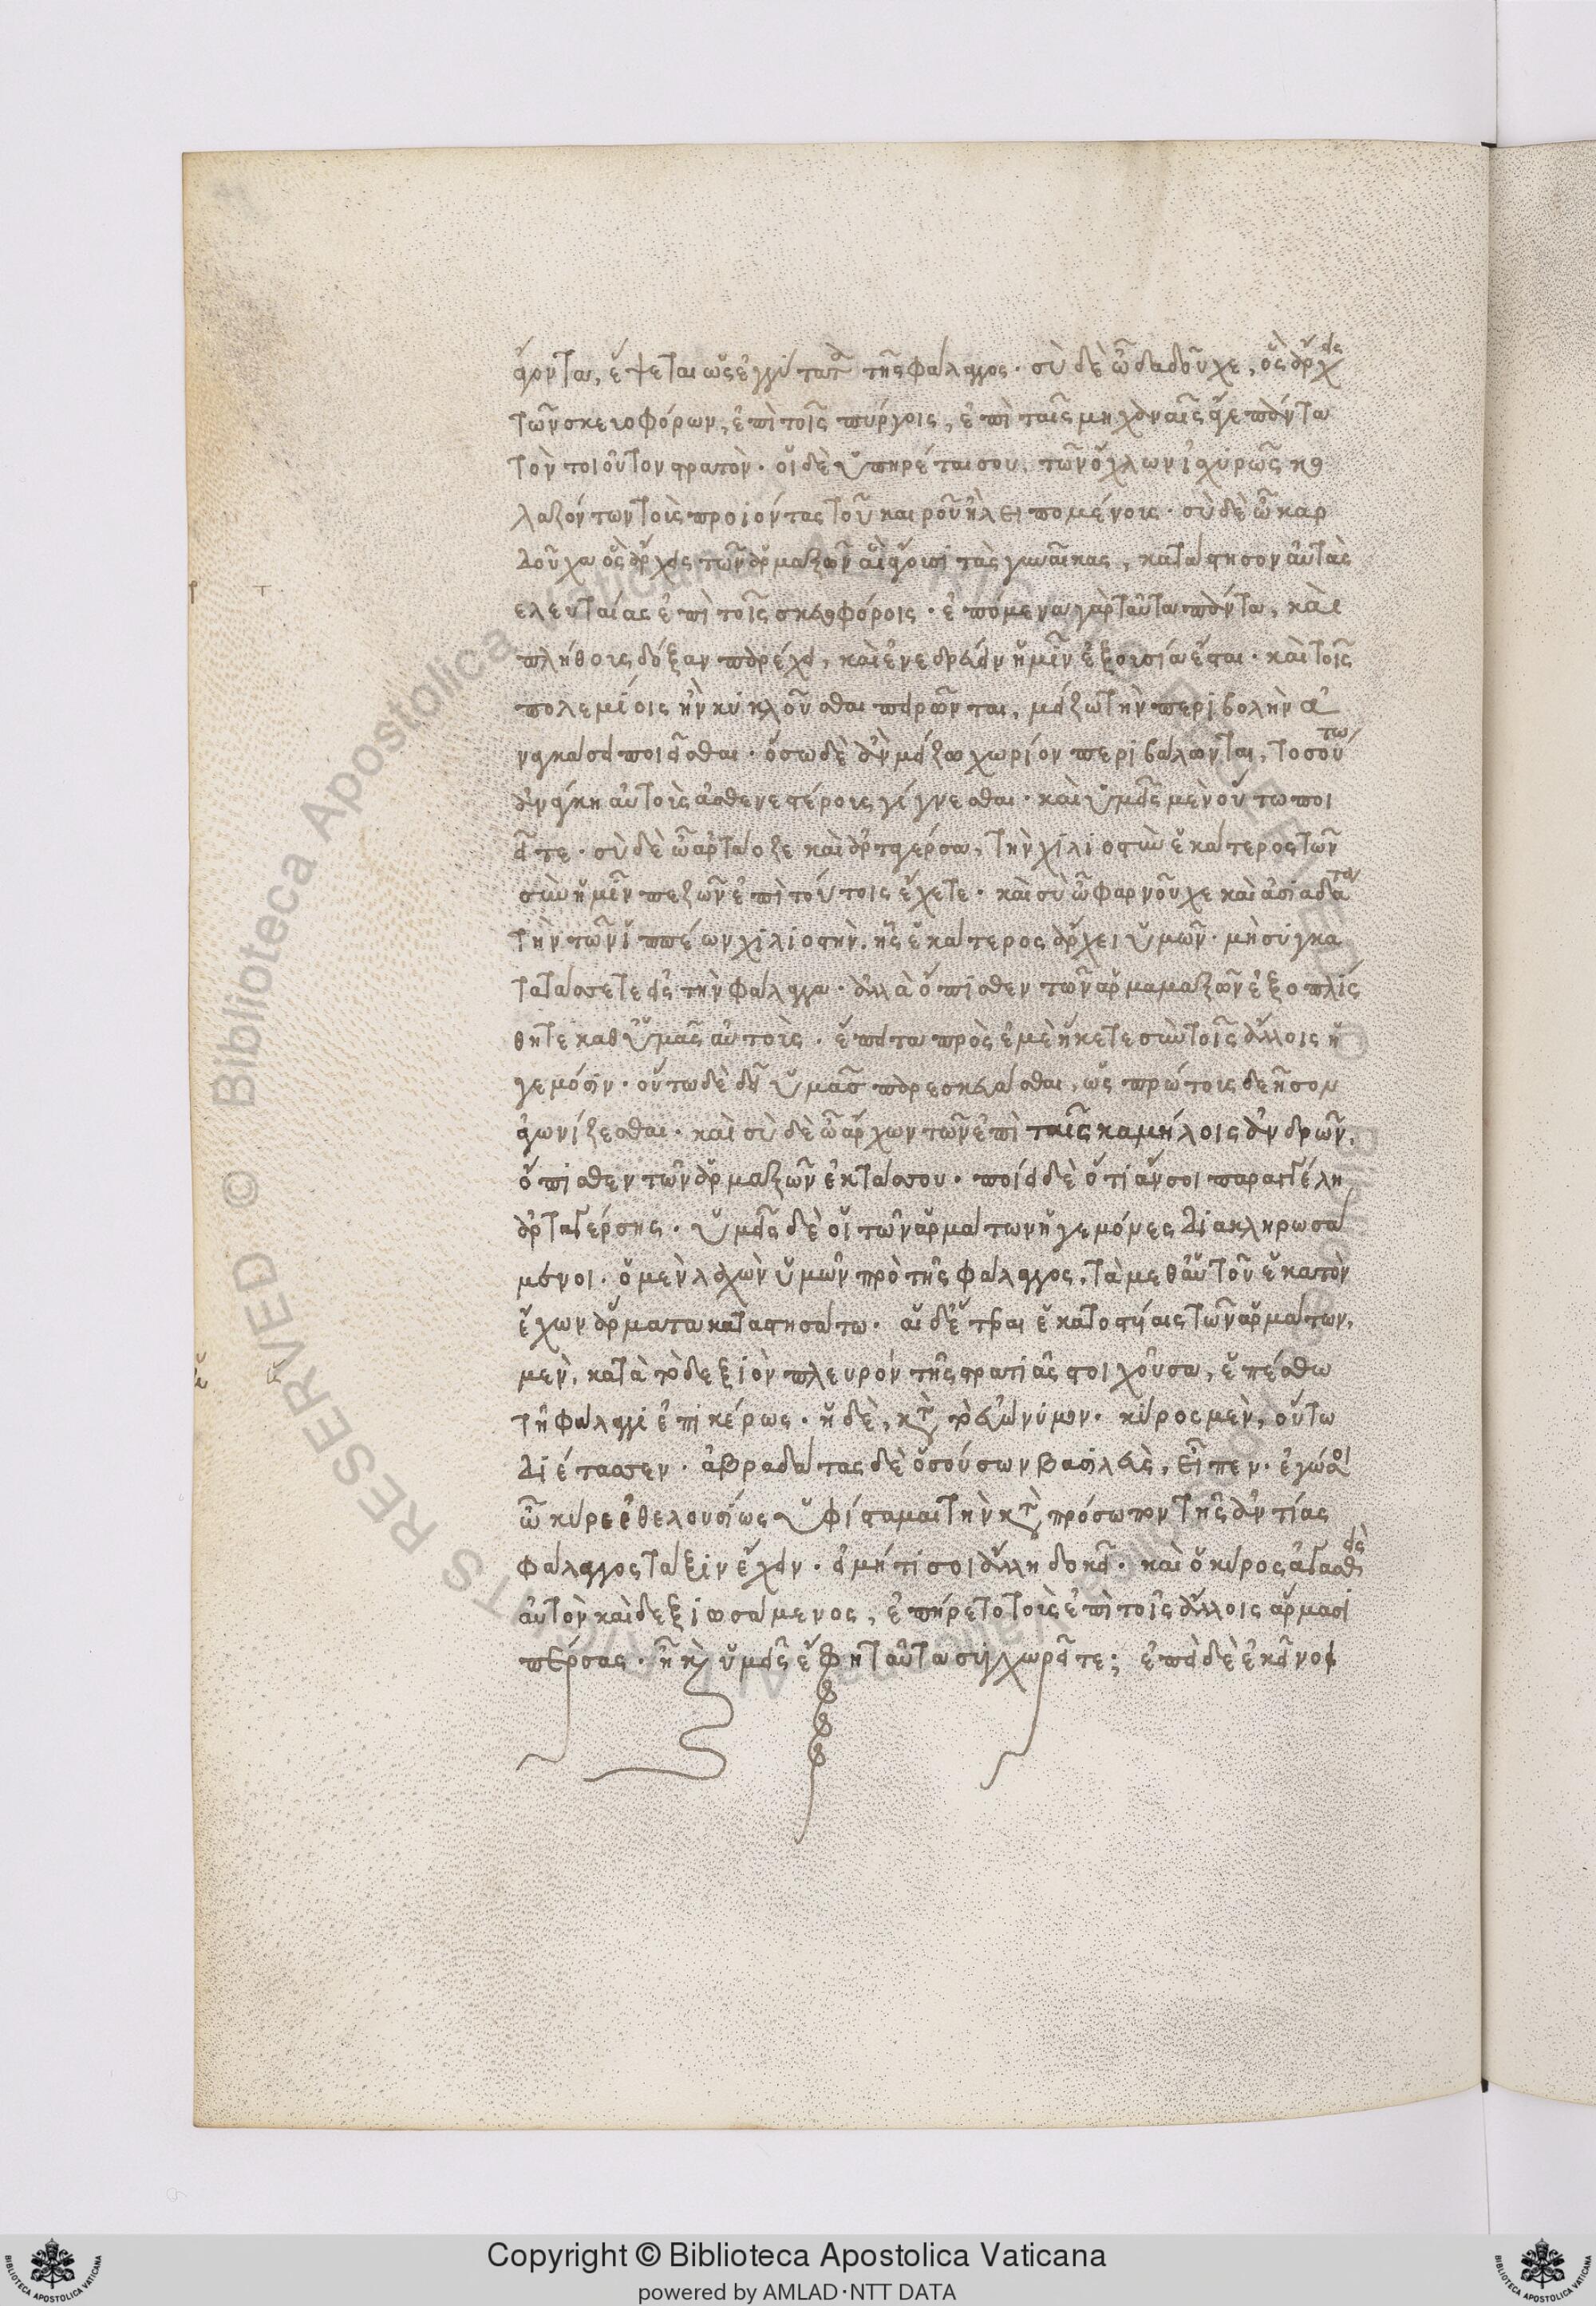 ἄγοντα, ἕψεται ὡς ἐγγύτατα τῆς φάλαγγος· σὺ δὲ ὦ δαδοῦχε, ὃς ἄρχεις
τῶν σκευοφόρων, ἐπὶ τοῖς πύργοις, ἐπὶ ταῖς μηχαναῖς ἄγε πάντα
τὸν τοιοῦτον στρατόν· οἱ δὲ ὑπηρέται σου, τῶν ὄχλων ἰσχυρῶς κο
λαζόντων τοὺς προϊόντας τοῦ καιροῦ ἢ λειπομένους· σὺ δὲ ὦ καρ
δοῦχα ὃς ἄρχεις τῶν ἁρμαμαξῶν αἳ ἄγουσι τὰς γυναῖκας, κατάστησον αὐτὰς
τελευταίας ἐπὶ τοῖς σκευοφόροις· ἑπόμενα γὰρ ταῦτα πάντα, καὶ
πλήθους δόξαν παρέχει, καὶ ἐνεδρεύειν ἡμῖν ἐξουσία ἔσται· καὶ τοῖς
πολεμίοις ἢν κυκλοῦσθαι πειρῶνται, μείζω τὴν περιβολὴν ἀ
ναγκάσει ποιεῖσθαι· ὅσῳ δὲ ἂν μεῖζον χωρίον περιβάλωνται, τοσούτῳ
ἀνάγκη αὐτοὺς ἀσθενεστέρους γίγνεσθαι· καὶ ὑμεῖς μὲν οὕτω ποι
εῖτε· σὺ δὲ ὦ ἀρτάοζε καὶ ἀρταγέρσα, τὴν χιλιοστὺν ἑκάτερος τῶν
σὺν ἡμῖν πεζῶν ἐπὶ τούτοις ἔχετε· καὶ σὺ ὦ φαρνοῦχε καὶ ἀσιαδάτα
τὴν τῶν ἱππέων χιλιοστὴν, ἧς ἑκάτερος ἄρχει ὑμῶν· μὴ συγκα
τατάσσετε εἰς τὴν φάλαγγα· ἀλλὰ ὄπισθεν τῶν ἁρμαμαξῶν ἐξοπλίσ
θητε καθ' ὑμᾶς αὐτούς· ἔπειτα πρὸς ἐμὲ ἥκετε σὺν τοῖς ἄλλοις ἡ
γεμόσιν· οὕτω δὲ δεῖ ὑμᾶς παρεσκευάσθαι, ὡς πρώτους δεῆσον
ἀγωνίζεσθαι· καὶ σὺ δὲ ὦ ἄρχων τῶν ἐπὶ ταῖς καμήλοις ἀνδρῶν,
ὄπισθεν τῶν ἁρμαμαξῶν ἐκτάσσου· ποίει δὲ ὅτι ἄν σοι παραγγέλη
ἀρταγέρσης· ὑμεῖς δὲ οἱ τῶν ἁρμάτων ἡγεμόνες διακληρωσά
μενοι· ὁ μὲν λαχὼν ὑμῶν πρὸ τῆς φάλαγγος, τὰ μεθ' αὑτοῦ ἑκατὸν
ἔχων ἅρματα καταστησάτω· αἱ δ' ἕτεραι ἑκατοστύαις τῶν ἁρμάτων,
μὲν, κατὰ τὸ δεξιὸν πλευρόν τῆς στρατιᾶς στοιχοῦσα, ἑπέσθω
τῇ φάλαγγι ἐπὶ κέρως· ἡ δὲ, κατὰ τὸ εὐώνυμον· κῦρος μὲν, οὕτω
διέτασσεν· ἀβραδάτας δὲ ὁ σούσων βασιλεὺς, εἶπεν· ἐγώ σοι
ὦ κῦρε ἐθελουσίως ὑφίσταμαι τὴν κατὰ πρόσωπον τῆς ἀντίας
φάλαγγος τάξιν ἔχειν· εἰ μή τί σοι ἄλλη δοκεῖ· καὶ ὁ κῦρος ἀγασθεὶς
αὐτὸν καὶ δεξιωσάμενος, ἐπήρετο τοὺς ἐπὶ τοῖς ἄλλοις ἅρμασι
πέρσας· ἦ καὶ ὑμεῖς ἔφη ταῦτα συγχωρεῖτε; ἐπεὶ δὲ ἐκεῖνοι
Copyright © Biblioteca Apostolica Vaticana
powered by AMLAD·NTT DATA